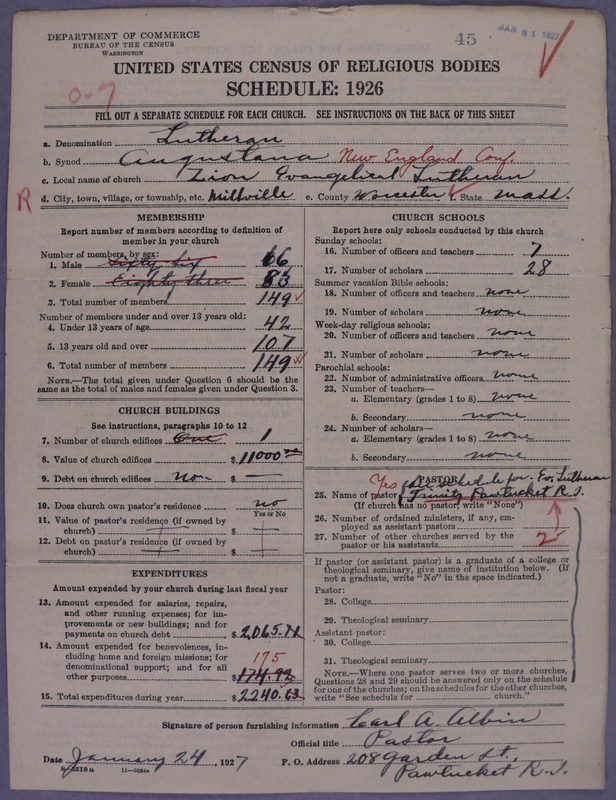 DEPARTMENT OF COMMERCE
BUREAU OF THE CENSUS
WASHINGTON
45
JAN 31 1927
UNITED STATES CENSUS OF RELIGIOUS BODIES
SCHEDULE: 1926
0-7
FILL OUT A SEPARATE SCHEDULE FOR EACH CHURCH. SEE INSTRUCTIONS ON THE BACK OF THIS SHEET
a. Denomination Lutheran
b. Synod Augustana New England Conf.
c. Local name of church Zion Evangelical Lutheran
R d. City, town, village, or township, etc. Millville e. County Worcester f. State Mass.
MEMBERSHIP
Report number of members according to definition of member in your church
Number of members, by sex:
1. Male Sixty Six 66
2. Female Eighty three 83
3. Total number of members 149
Number of members under and over 13 years old:
4. Under 13 years of age 42
5. 13 years old and over 107
6. Total number of members 149
NOTE.—The total given under Question 6 should be the same as the total of males and females given under Question 3.
CHURCH BUILDINGS
See instructions, paragraphs 10 to 12
7. Number of church edifices One 1
8. Value of church edifices $11000 00
9. Debt on church edifices non $ —
10. Does church own pastor's residence no
Yes or No
11. Value of pastor's residence (if owned by church) $
12. Debt on pastor's residence (if owned by church) $
EXPENDITURES
Amount expended by your church during last fiscal year
13. Amount expended for salaries, repairs, and other running expenses; for improvements or new buildings; and for payments on church debt $2,065.71
14. Amount expended for benevolences, including home and foreign missions; for denominational support; and for all other purposes 175 $174.92
15. Total expenditures during year $2240.63
CHURCH SCHOOLS
Report here only schools conducted by this church
Sunday schools:
16. Number of officers and teachers 7
17. Number of scholars 28
Summer vacation Bible schools:
18. Number of officers and teachers none
19. Number of scholars none
Week-day religious schools:
20. Number of officers and teachers none
21. Number of scholars none
Parochial schools:
22. Number of administrative officers none
23. Number of teachers—
a. Elementary (grades 1 to 8) none
b. Secondary none
24. Number of scholars—
a. Elementary (grades 1 to 8) none
b. Secondary none
PASTOR
Yes See schedule for Ev. Lutheran
25. Name of pastor Trinity Pawtucket R.I.
(If church has no pastor, write "None")
26. Number of ordained ministers, if any, employed as assistant pastors
27. Number of other churches served by the pastor or his assistants 2
If pastor (or assistant pastor) is a graduate of a college or theological seminary, give name of institution below. (If not a graduate, write "No" in the space indicated.)
Pastor:
28. College
29. Theological seminary
Assistant pastor:
30. College
31. Theological seminary
NOTE.—Where one pastor serves two or more churches, Questions 28 and 29 should be answered only on the schedule for one of the churches; on the schedules for the other churches, write "See schedule for church."
Signature of person furnishing information Carl A. Albin
Official title Pastor
Date January 24, 1927 P. O. Address 208 Garden St.,
Pawtucket R.I.
8-5518a 11-9054